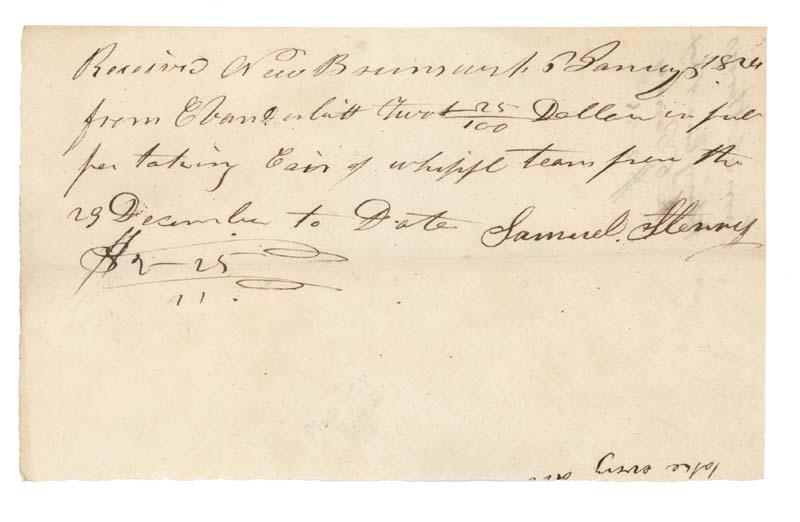 Received New Brunswick 5 January 1824
from C Vanderbilt two 25/100 Dollars in full
per taking Cair of whippl team from the
29 Desember to Date Samuel. Henry
$2-25
11.